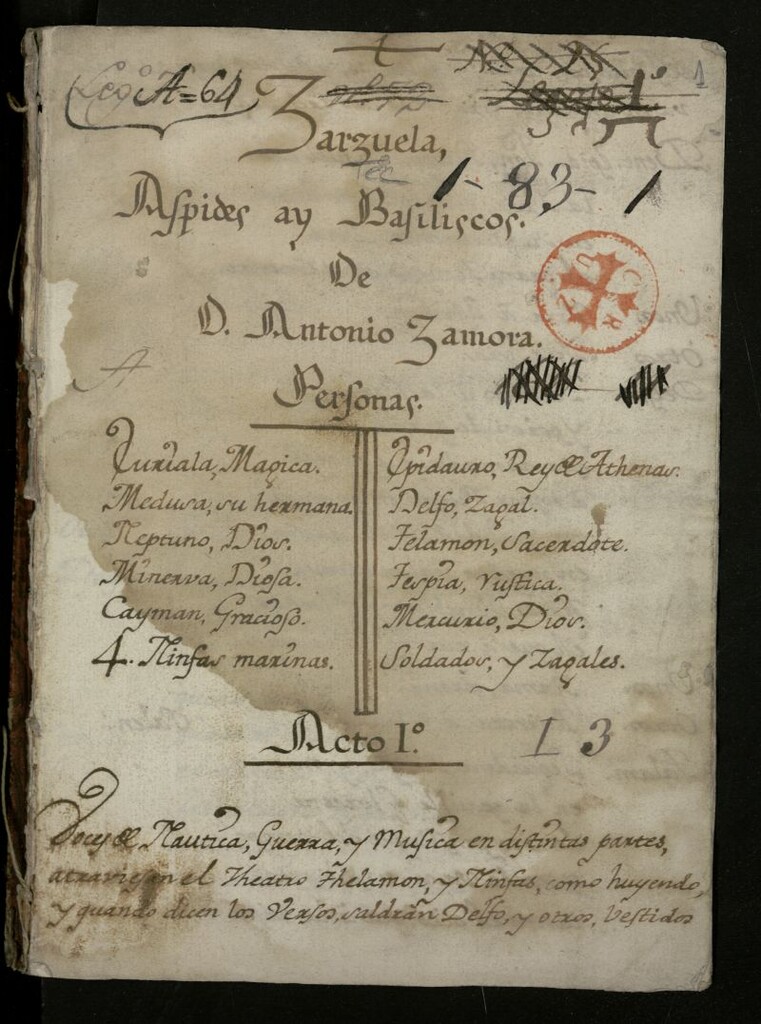 1
Leg.º A=64
Zarzuela,
Tea
1-83-1
Aspides ay Basiliscos.
De
D. Antonio Zamora.
Personas.
Curiala, Magica.
Medusa, su hermana.
Neptuno, Dios.
Minerva, Diosa.
Cayman, Gracioso.
4. Ninfas marinas.
Epidauro, Rey de Athenas.
Delfo, Zagal.
Telamon, Sacerdote.
Tespia, rustica.
Mercurio, Dios.
Soldados, y Zagales.
Acto I.º
I 3
Voces de Nautica, Guerra, y Musica en distintas partes,
atraviesan el Theatro Thelamon, y Ninfas, como huyendo,
y quando dicen los Versos, saldràn Delfo, y otros, vestidos